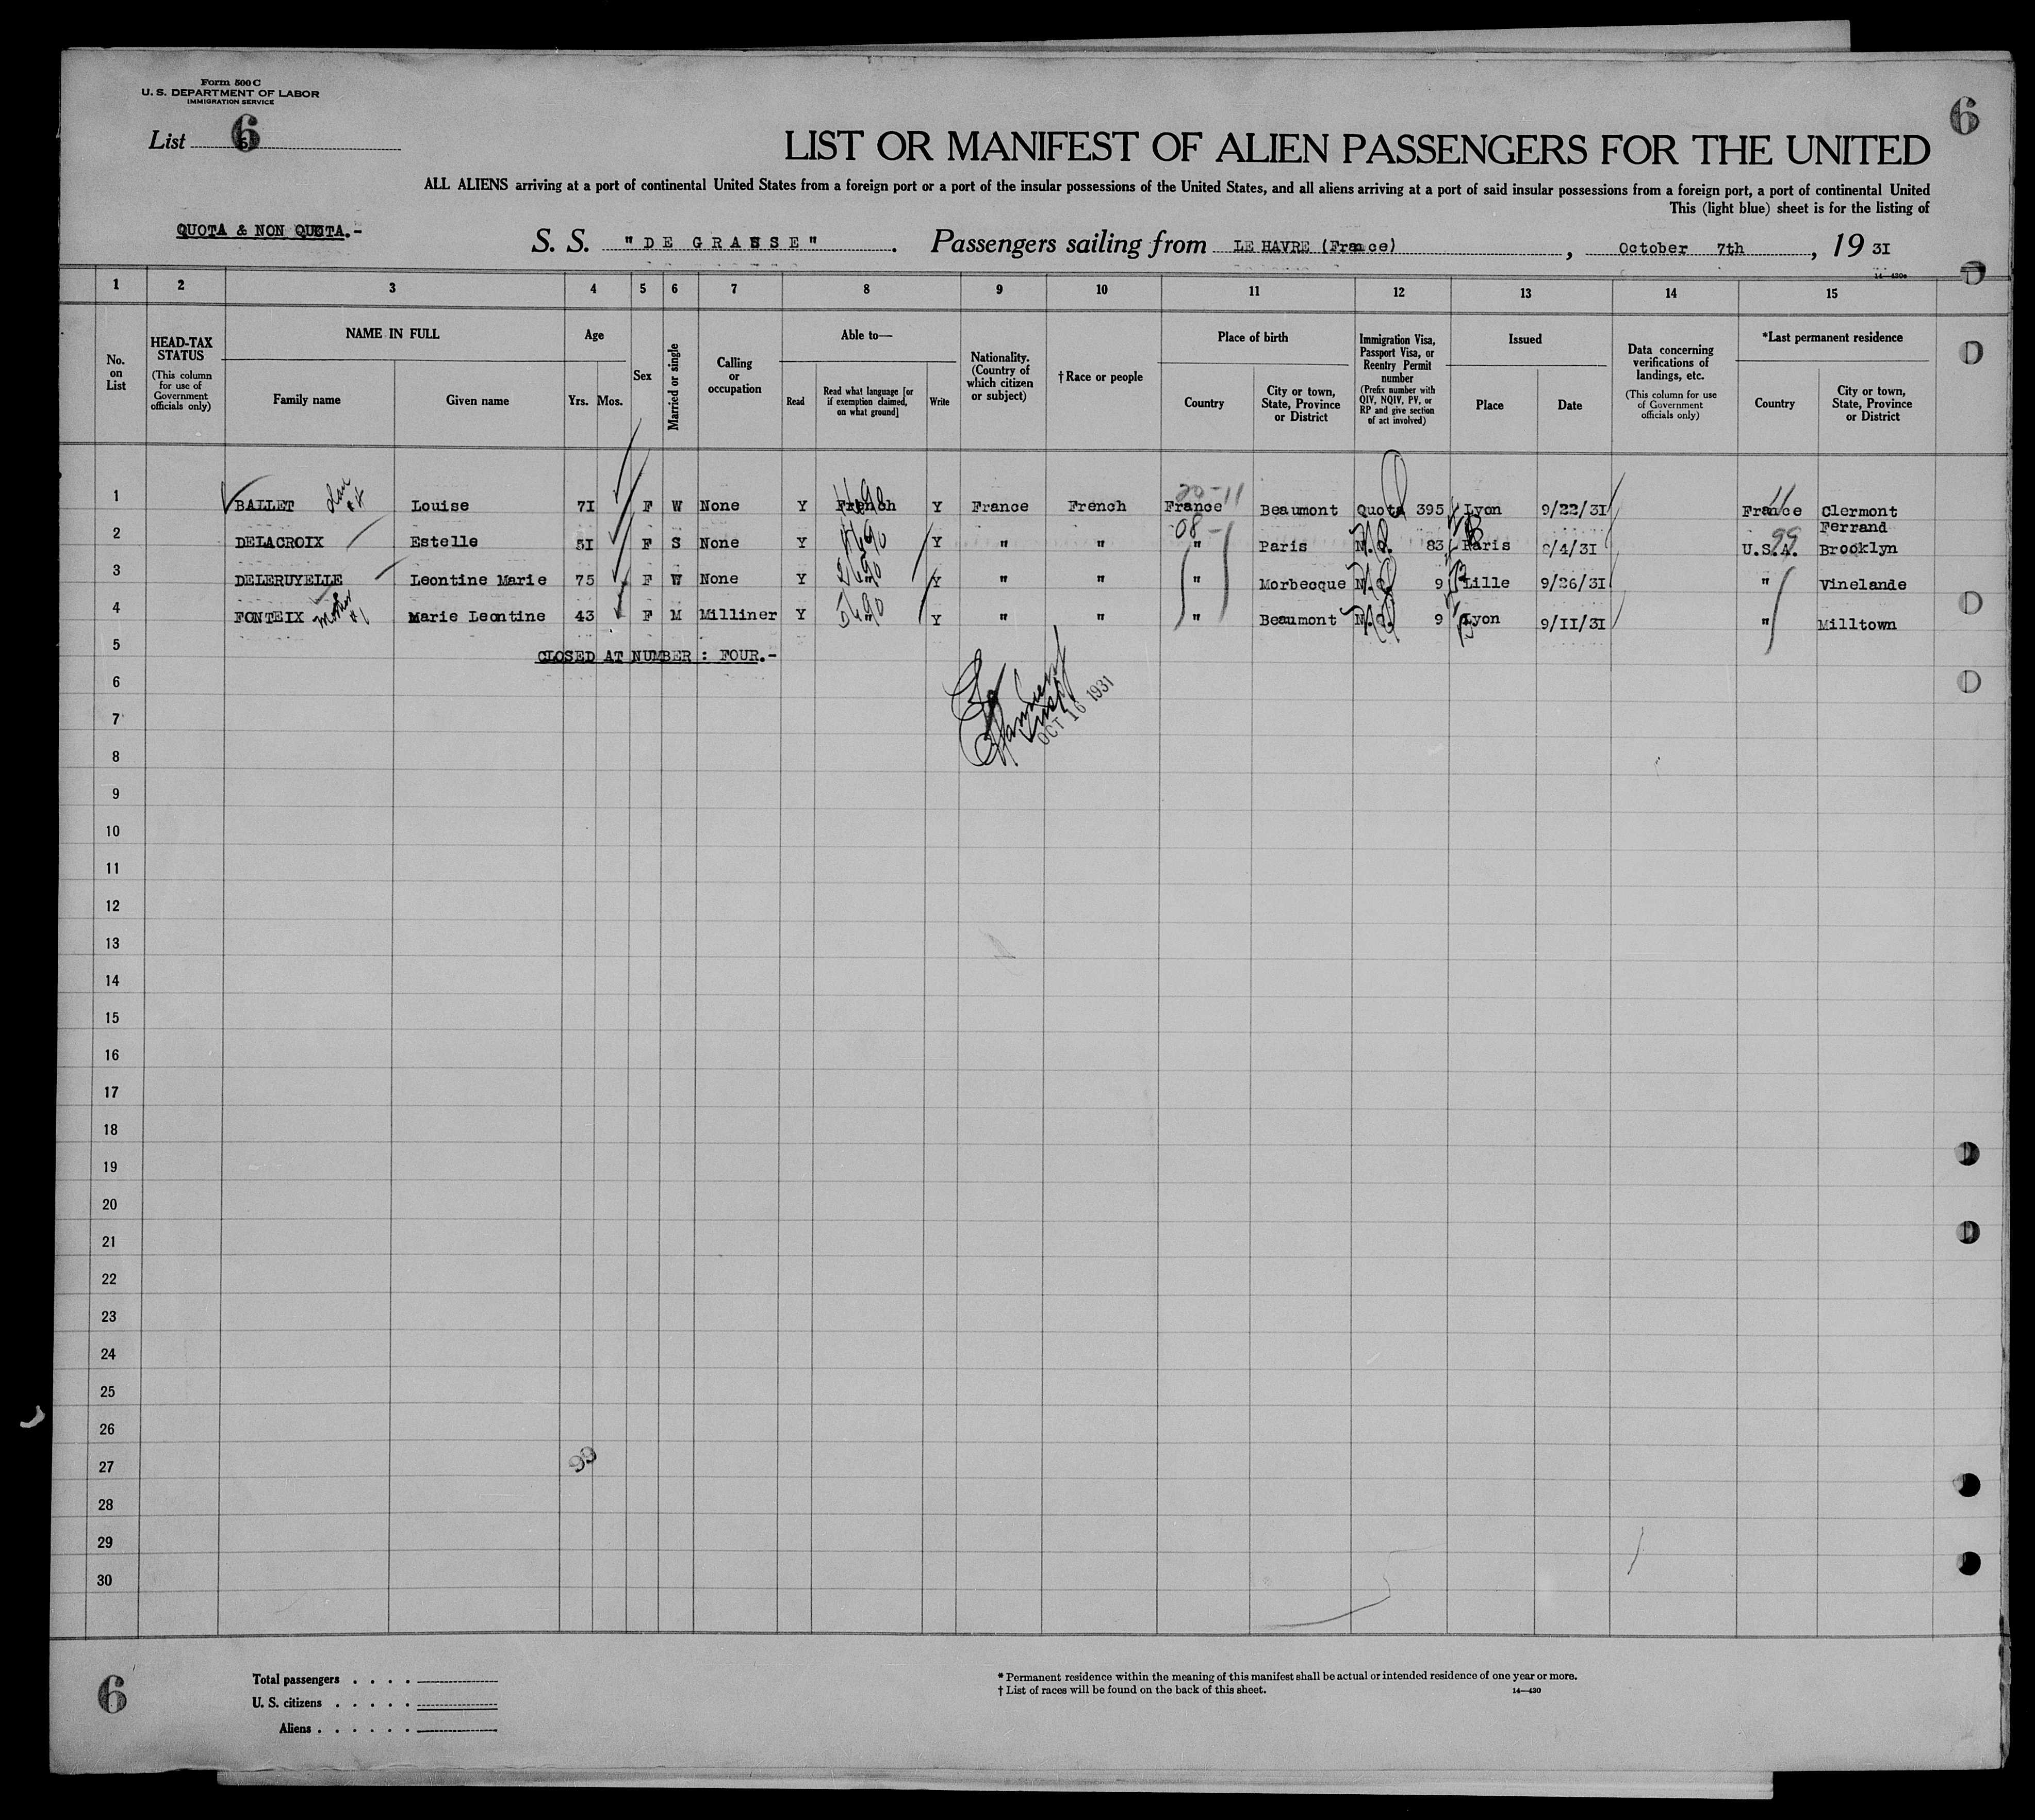 Form 500 C
U. S. DEPARTMENT OF LABOR
IMMIGRATION SERVICE
List 6
6
LIST OR MANIFEST OF ALIEN PASSENGERS FOR THE UNITED
ALL ALIENS arriving at a port of continental United States from a foreign port or a port of the insular possessions of the United States, and all aliens arriving at a port of said insular possessions from a foreign port, a port of continental United
This (light blue) sheet is for the listing of
QUOTA & NON QUOTA.-
S. S. "DE GRASSE". Passengers sailing from LE HAVRE (France), October 7th, 19 31
14—430a
1 2 3 4 5 6 7 8 9 10 11 12 13 14 15
No. on List
HEAD-TAX STATUS (This column for use of Government officials only)
NAME IN FULL Family name Given name
Age Yrs. Mos.
Sex
Married or single
Calling or occupation
Able to— Read Read what language [or if exemption claimed, on what ground] Write
Nationality. (Country of which citizen or subject)
† Race or people
Place of birth Country City or town, State, Province or District
Immigration Visa, Passport Visa, or Reentry Permit number (Prefix number with QIV, NQIV, PV, or RP and give section of act involved)
Issued Place Date
Data concerning verifications of landings, etc. (This column for use of Government officials only)
*Last permanent residence Country City or town, State, Province or District
20-11
1 BALLET Louise 71 F W None Y French Y France French France Beaumont Quota 395 Lyon 9/22/31 France Clermont Ferrand
08-
99
2 DELACROIX Estelle 51 F S None Y " Y " " " Paris N.Q. 83 Paris 8/4/31 U.S.A. Brooklyn
3 DELERUYELLE Leontine Marie 75 F W None Y " Y " " " Morbecque N.Q. 9 Lille 9/26/31 " Vinelande
4 FONTEIX Mother #1 Marie Leontine 43 F M Milliner Y " Y " " " Beaumont N.Q. 9 Lyon 9/11/31 " Milltown
5 CLOSED AT NUMBER : FOUR.-
6
7 OCT 16 1931
8
9
10
11
12
13
14
15
16
17
18
19
20
21
22
23
24
25
26
27 99
28
29
30
6
Total passengers . . . .
U. S. citizens . . . . .
Aliens . . . . . .
* Permanent residence within the meaning of this manifest shall be actual or intended residence of one year or more.
† List of races will be found on the back of this sheet. 14—430